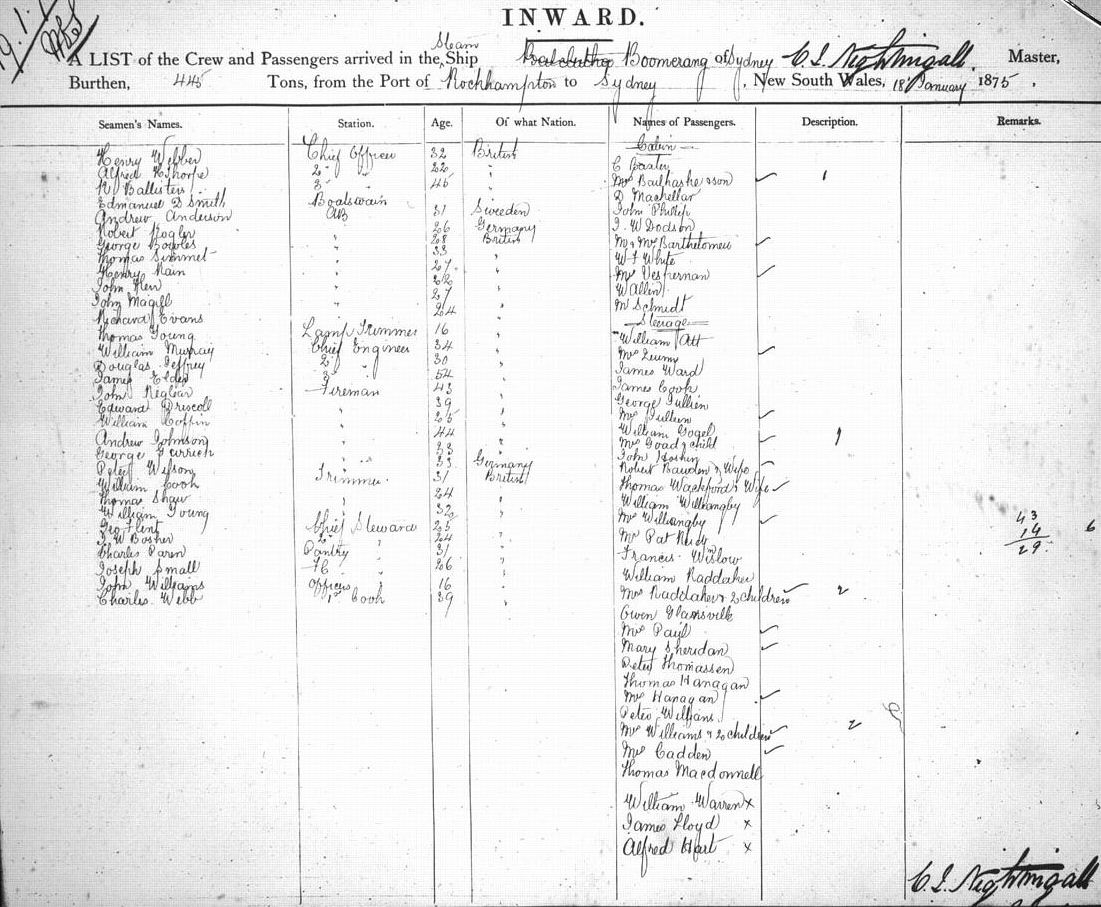 INWARD.
A LIST of the Crew and Passengers arrived in the Steam Ship Boomerang of Sydney C. L. Nightingall, Master,
Burthen, 445 Tons, from the Port of Rockhampton to Sydney, New South Wales, 18th January 1875.
Seamen's Names. Station. Age. Of what Nation. Names of Passengers. Description. Remarks.
Cabin
Henry Webber Chief Officer 32 British
Alfred K Thorpe 2d " 22 "
C Baxter
R Ballisters 3 " 45 "
Mrs son 1
Edmanuel D Smith Boatswain
D Machellar
Andrew Anderson AB 31 Sweden
John Phillip
Robert 26 Germany
J. W Dodson
George Bowles " 28 British
Mr & Mrs Bartholomew
Thomas Simmet " 33 "
W F White
Henry Main " 27 "
Mrs Vespernan
John Kerr "
W Allen
John Magill " 27 "
Mr Schmidt
Richard Evans " 24 "
Steerage
Thomas Young Lamp Trimmer 16 "
William Att
William Murray Chief Engineer 34 "
Mrs
Douglas Jeffrey 2 " 30 "
James Ward
James Elder 3 " 54 "
James Cook
John Fireman 43 "
George Jullien
Edward Driscoll " 39 "
Mrs Jullien
William Coffin " 25 "
William Gogel
Andrew Johnson " 44 "
Mrs Goad & child 1
George " 33 "
John Hoskin
Peter Wilson " 33 Germany
Robert Bawden & Wife
William Cook Trimmer 31 British
Thomas Wackford & Wife
Thomas Shaw " 24 "
William Willangby
William Young " 32 "
Mrs Willangby
Geo Flint Chief Steward 25 "
43
J. W Bosher 2d " 24 "
Mr Pat Reidy
14 6
Charles Paren Pantry " 31 "
Francis Wislow
29
Joseph Small FC " 26 "
William Raddaker
John Williams Officers " 16 "
Mrs Raddaker & 2 children 2
Charles Webb 1st Cook 39 "
Owen Glansville
Mrs Paul
Mary Sheridan
Peter Thomassen
Thomas Hanagan
Mrs Hanagan
Peter Williams
Mrs Williams & 2 children 2
Mrs Cadden
Thomas Macdonnell
William Warren x
James Lloyd x
Alfred Hart x
C. L. Nightingall